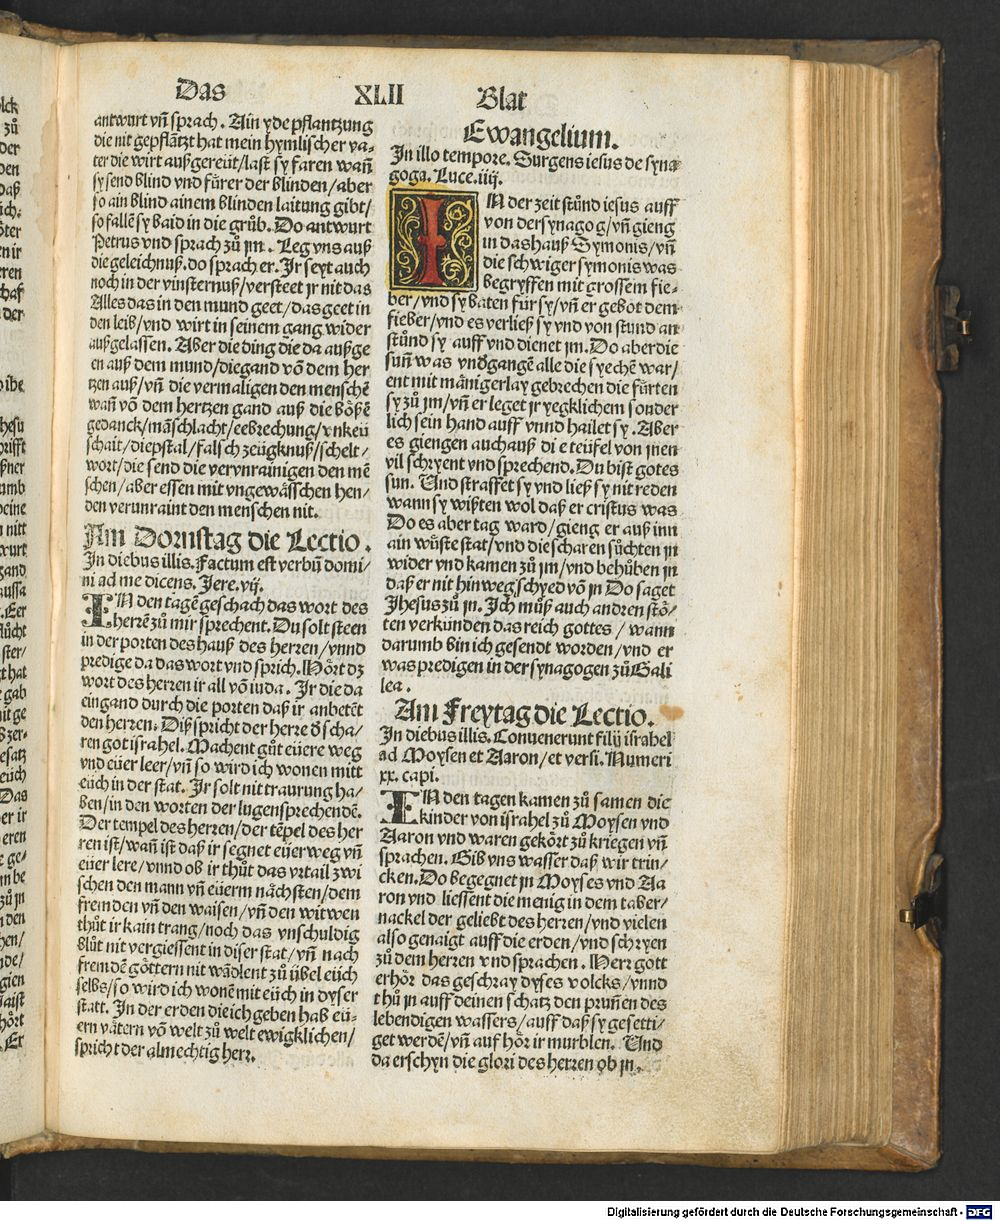 Das XLII Blat
antwurt vñ sprach. Ain yde pflantzung
die nit gepflãtzt hat mein hymlischer va-
ter die wirt außgereüt/last sy faren wañ
sy send blind vnd fürer der blinden/aber
so ain blind ainem blinden laitung gibt/
so fallẽ sy baid in die grůb. Do antwurt
Petrus vnd sprach zů jm. Leg vns auß
die geleichnuß. do sprach er. Jr seyt auch
noch in der vinsternuß/versteet jr nit das
Alles das in den mund geet/das geet in
den leib/vnd wirt in seinem gang wider
außgelassen. Aber die ding die da außge
en auß dem mund/die gand võ dem her
tzen auß/vñ die vermaligen den menschẽ
wañ võ dem hertzen gand auß die bößẽ
gedanck/mãschlacht/eebrechung/vnkeü
schait/diepstal/falsch zeügknuß/schelt/
wort/die send die verunrainigen den mẽ
schen/aber essen mit vngewäschen hen/
den verunraint den menschen nit.
Am Dornstag die Lectio.
In diebus illis. Factum est verbũ domi/
ni ad me dicens. Jere. vij.
IN den tagẽ geschach das wort des
herrẽ zů mir sprechent. Du solt steen
in der porten des hauß des herren/vnnd
predige da das wort vnd sprich. Hört dz
wort des herren ir all võ iuda. Ir die da
eingand durch die porten daß ir anbetẽt
den herren. Diß spricht der herre ð scha/
ren got israhel. Machent gůt eüere weg
vnd eüer leer/vñ so wird ich wonen mitt
eüch in der stat. Ir solt nit traurung ha/
ben/in den worten der lugensprechendẽ.
Der tempel des herren/der tẽpel des her
ren ist/wañ ist daß ir segnet eüer weg vñ
eüer lere/vnnd ob ir thůt das vrtail zwi
schen den mann vñ eüerm nächsten/dem
fremden vñ den waisen/vñ den witwen
thůt ir kain trang/noch das vnschuldig
blůt nit vergiessent in diser stat/vñ nach
fremdẽ göttern nit wãdlent zů übel eüch
selbs/so wird ich wonẽ mit eüch in dyser
statt. In der erden die ich geben hab eü-
ern vätern võ welt zů welt ewigklichen/
spricht der almechtig herr.
Ewangelium.
In illo tempore. Surgens iesus de syna
goga. Luce. iiij.
IN der zeit stůnd iesus auff
von der synagog/vñ gieng
in das hauß Symonis/vñ
die schwiger symonis was
begryffen mit grossem fie-
ber/vnd sy baten für sy/vñ er gebot dem
fieber/vnd es verließ sy vnd von stund an
stůnd sy auff vnd dienet jm. Do aber die
suñ was vnðgangẽ alle die syechẽ war/
ent mit mãnigerlay gebrechen die fürten
sy zů jm/vñ er leget jr yegklichem sonder
lich sein hand auff vnnd hailet sy. Aber
es giengen auch auß di e teüfel von jnen
vil schryent vnd sprechend. Du bist gotes
sun. Und straffet sy vnd ließ sy nit reden
wann sy wißten wol daß er cristus was
Do es aber tag ward/gieng er auß inn
ain wüste stat/vnd die scharen sůchten jn
wider vnd kamen zů jm/vnd behůben jn
daß er nit hinweg schyed võ jn Do saget
Jhesus zů jn. Ich můß auch andren stö/
ten verkünden das reich gottes / wann
darumb bin ich gesendt worden/vnd er
was predigen in der synagogen zů Gali
lea.
Am Freytag die Lectio.
In diebus illis. Convenerunt filij israhel
ad Moysen et Aaron/et versi. Numeri
xx. capi.
IN den tagen kamen zů samen die
kinder von israhel zů Moysen vnd
Aaron vnd waren gekört zů kriegen vñ
sprachen. Gib vns wasser daß wir trin/
cken. Do begegnet jn Moyses vnd Aa
ron vnd liessent die menig in dem taber/
nackel der geliebt des herren/vnd vielen
also genaigt auff die erden/vnd schryen
zů dem herren vnd sprachen. Herr gott
erhör das geschray dyses volcks/vnnd
thů jn auff deinen schatz den pruñen des
lebendigen wassers/auff daß sy gesetti/
get werdẽ/vñ auf hör ir murblen. Und
da erschyn die glori des herren ob jn.
Digitalisierung gefördert durch die Deutsche Forschungsgemeinschaft - DFG